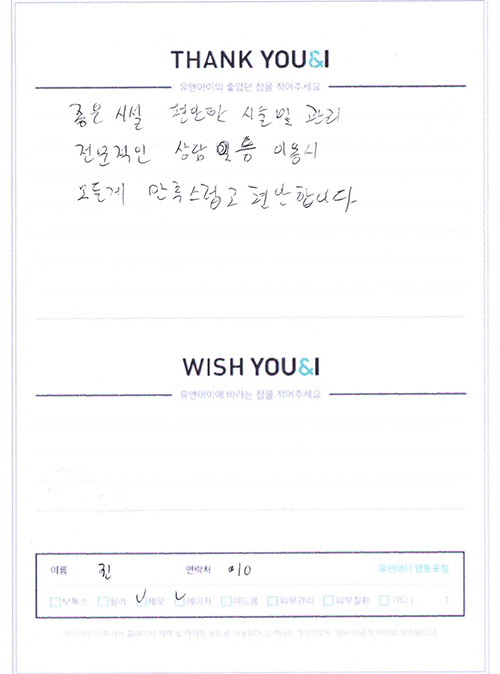 THANK YOU&I
유앤아이의 좋았던 점을 적어주세요
좋은 시설 편안한 시술 및 관리
전문적인 상담 등 이용시
모든게 만족스럽고 편안합니다
WISH YOU&I
유앤아이에 바라는 점을 적어주세요
이름 진 연락처 010 유앤아이 영등포점
보톡스 필러 제모 레이저 여드름 피부관리 피부질환 기타 ( )